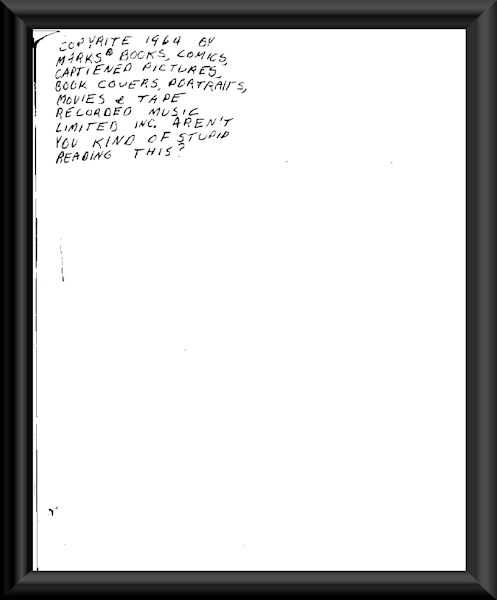 COPYRITE 1964 BY
MARKS® BOOKS, COMICS,
CAPTIENED PICTURES,
BOOK COVERS, PORTRAITS,
MOVIES & TAPE
RECORDED MUSIC
LIMITED INC. AREN'T
YOU KIND OF STUPID
READING THIS?